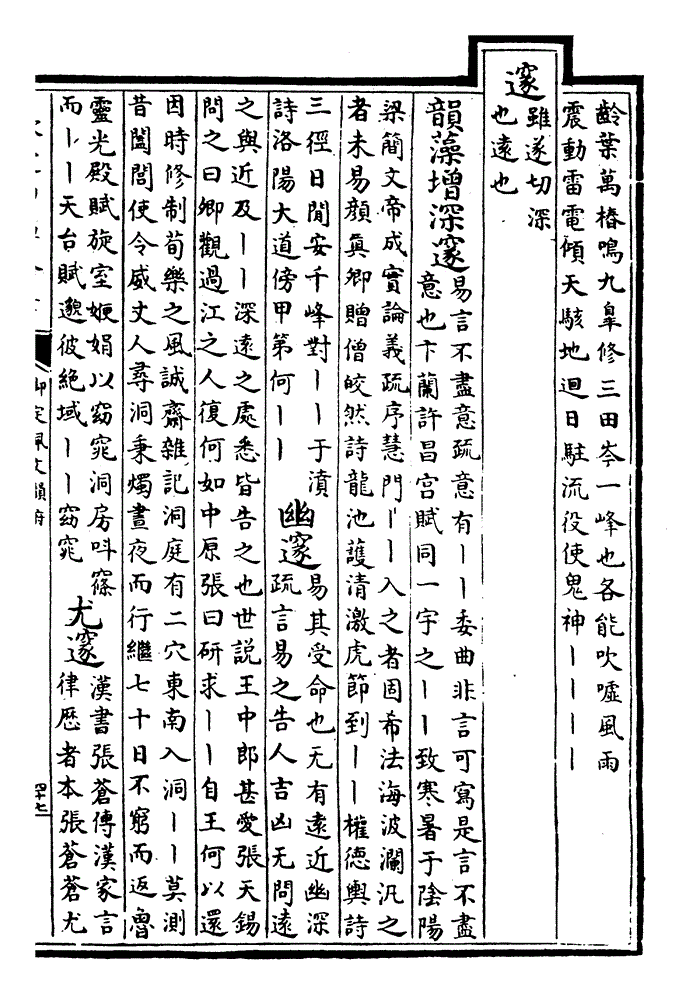 齡葉萬椿鳴九臯修三田岑一峰也各能吹噓風雨
震動雷電傾天駭地迴日駐流役使鬼神丨丨丨丨
邃
雖遂切深
也遠也
韻藻增深邃
易言不盡意疏意有丨丨委曲非言可寫是言不盡
意也卞蘭許昌宮賦同一宇之丨丨致寒暑于陰陽
梁簡文帝成實論義疏序慧門丨丨入之者固希法海波瀾汎之
者未易顏真卿贈僧皎然詩龍池護清激虎節到丨丨權德輿詩
三徑日閒安千峰對丨丨于濆
詩洛陽大道傍甲第何丨丨
幽邃
易其受命也无有遠近幽深
疏言易之告人吉凶无問遠
之與近及丨丨深遠之處悉皆告之也世説王中郎甚愛張天錫
問之曰卿觀過江之人復何如中原張曰研求丨丨自王何以還
因時修制荀樂之風誠齋雜記洞庭有二穴東南入洞丨丨莫測
昔闔閭使令威丈人尋洞秉燭晝夜而行繼七十日不窮而返魯
靈光殿賦旋室㛹娟以窈窕洞房叫窱
而丨丨天台賦邈彼絶域丨丨窈窕
尤邃
漢書張蒼傳漢家言
律歴者本張蒼蒼尤
御定佩文韻府
四十七